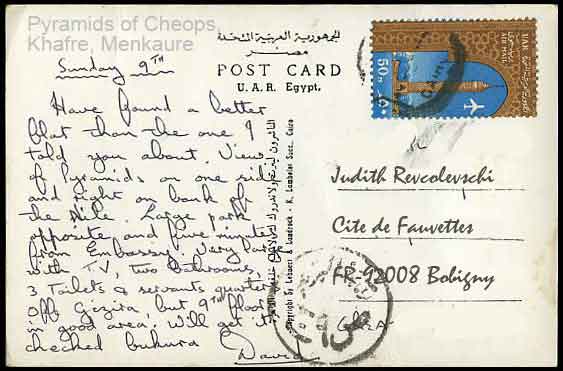 Pyramids of Cheops,
Khafre, Menkaure
الجمهورية العربية المتحدة
مصر
POST CARD
U. A. R. Egypt.
Sunday 9TH
Have found a better
flat than the one I
told you about. View
of Pyramids on one side
and right on bank of
the Nile. Large park
opposite and five minutes
from Embassy. Very large
with T.V, two bathrooms,
3 toilets & servants quarters
off Gezira, but 9TH floor
in good area. Will get it
checked bukura
David
Copyright by Lehnert & Landrock - K. Lambelet Succ. Cairo
UAR
AIR MAIL
50 M
Judith Revcolevschi
Cite de Fauvettes
FR-92008 Bobigny